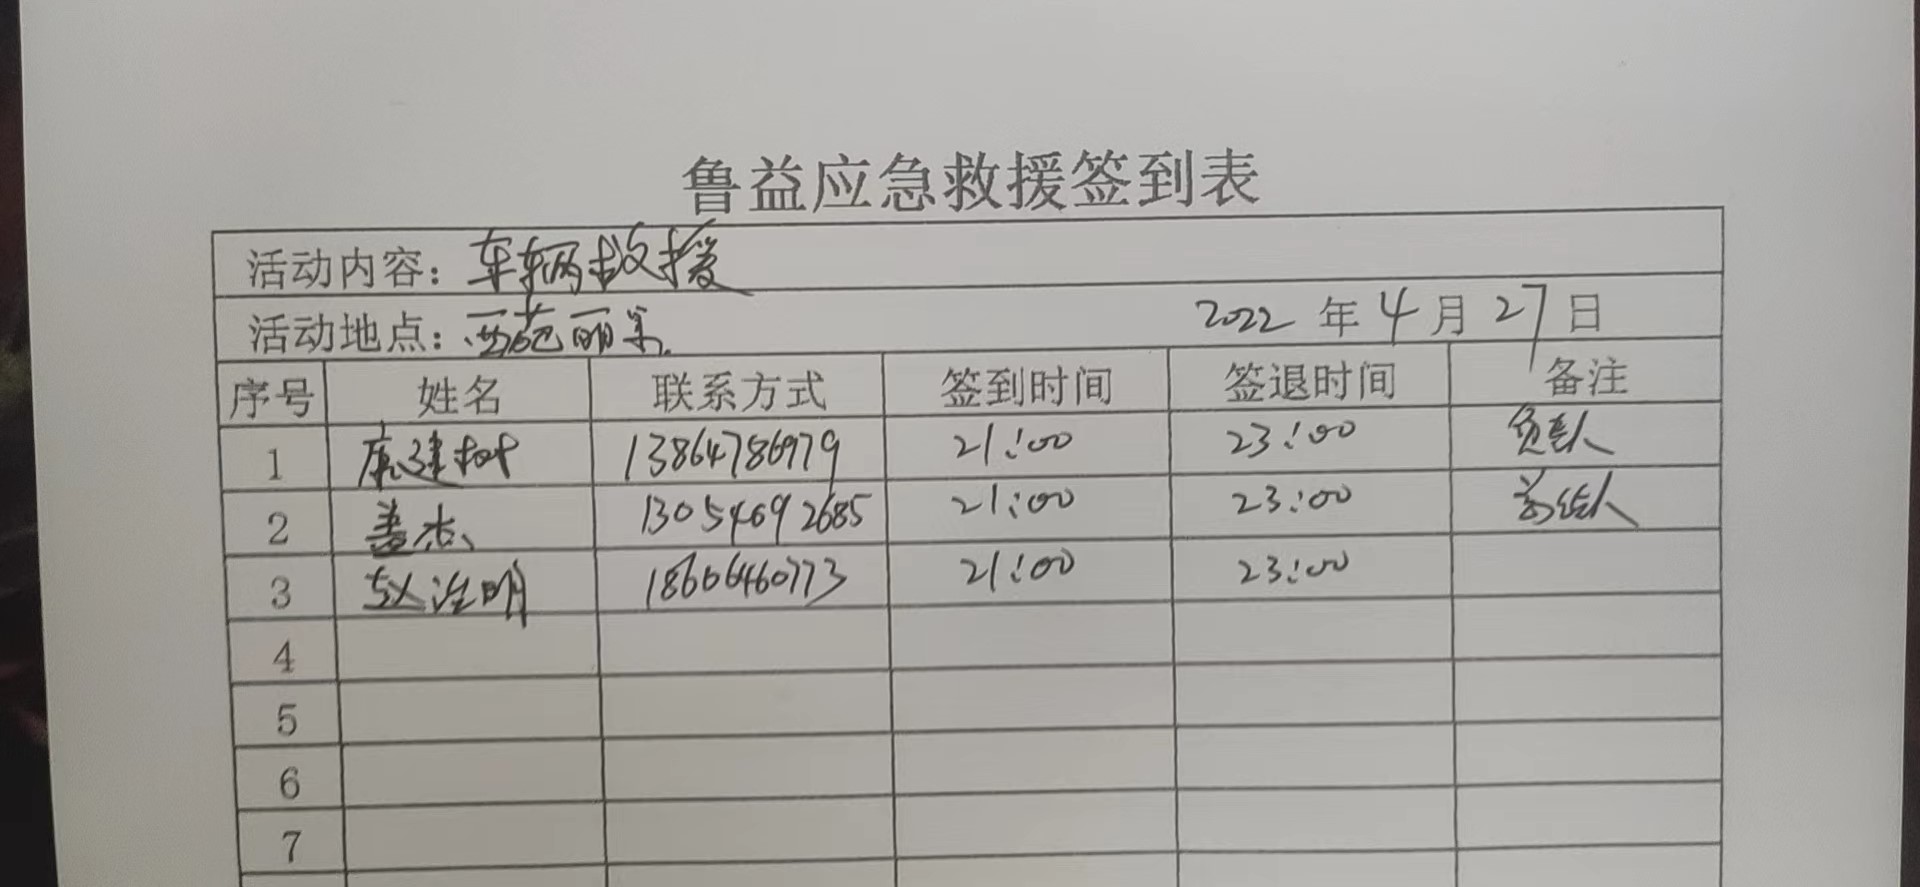 鲁益应急救援签到表
活动内容：车辆救援
活动地点：西苑丽景 2022年4月27日
序号 姓名 联系方式 签到时间 签退时间 备注
1 康建树 13864786979 21:00 23:00 负责人
2 盖杰 13054692685 21:00 23:00
3 赵治明 18606460773 21:00 23:00
4
5
6
7